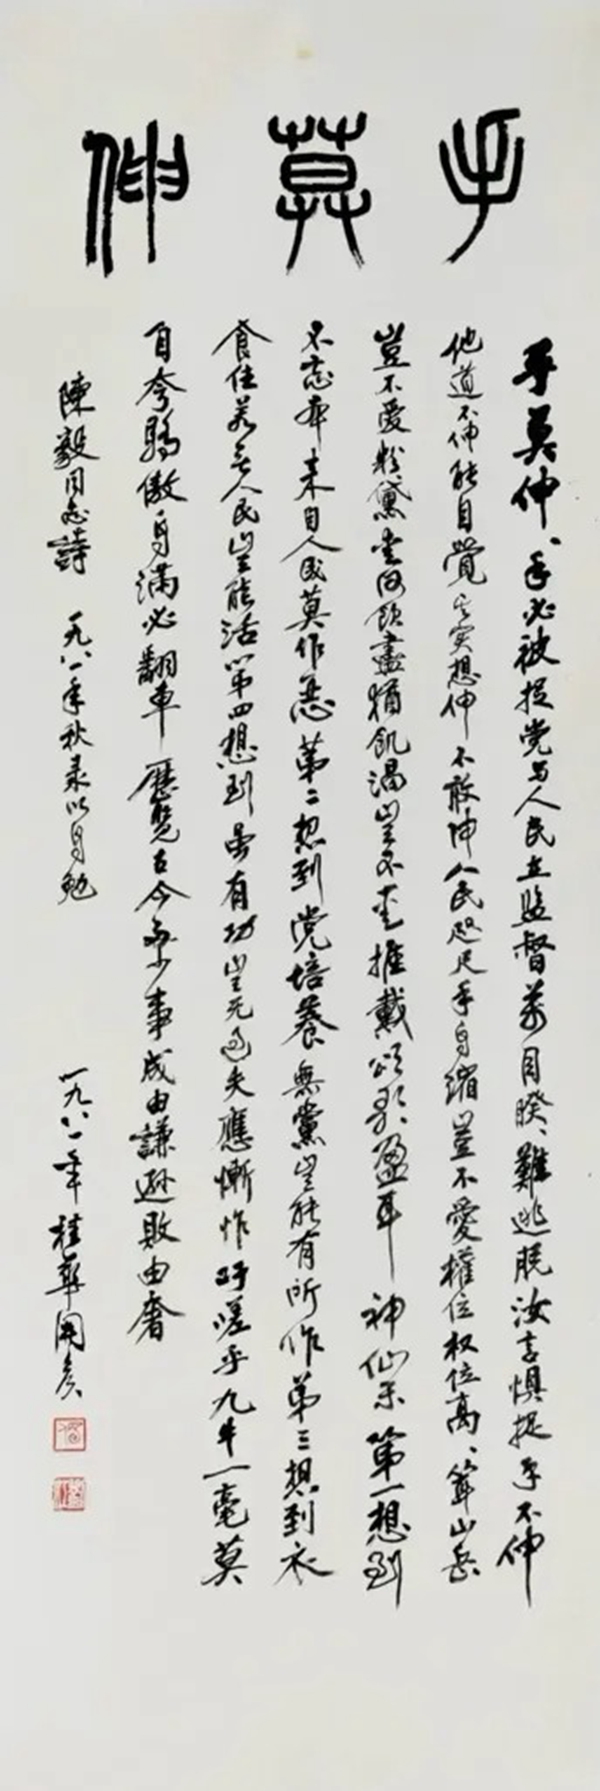 手莫伸
手莫伸、手必被捉党与人民在监督万目睽、難逃脱汝言惧捉手不伸
他道不伸能自覺其实想伸不敢伸人民咫尺手自缩豈不愛權位权位高、耸山岳
豈不愛粉黛爱河饮盡猶飢渴豈不爱推戴颂歌盈耳神仙乐第一想到
不忘本来自人民莫作恶第二想到党培养無黨豈能有所作第三想到衣
食住若无人民豈能活第四想到虽有功豈无过失應慚怍吁嗟乎九牛一毫莫
自夸驕傲自满必翻車歷览古今多少事成由謙逊敗由奢
陳毅同志詩 一九八一年秋录以自勉
一九八一年桂華開矣